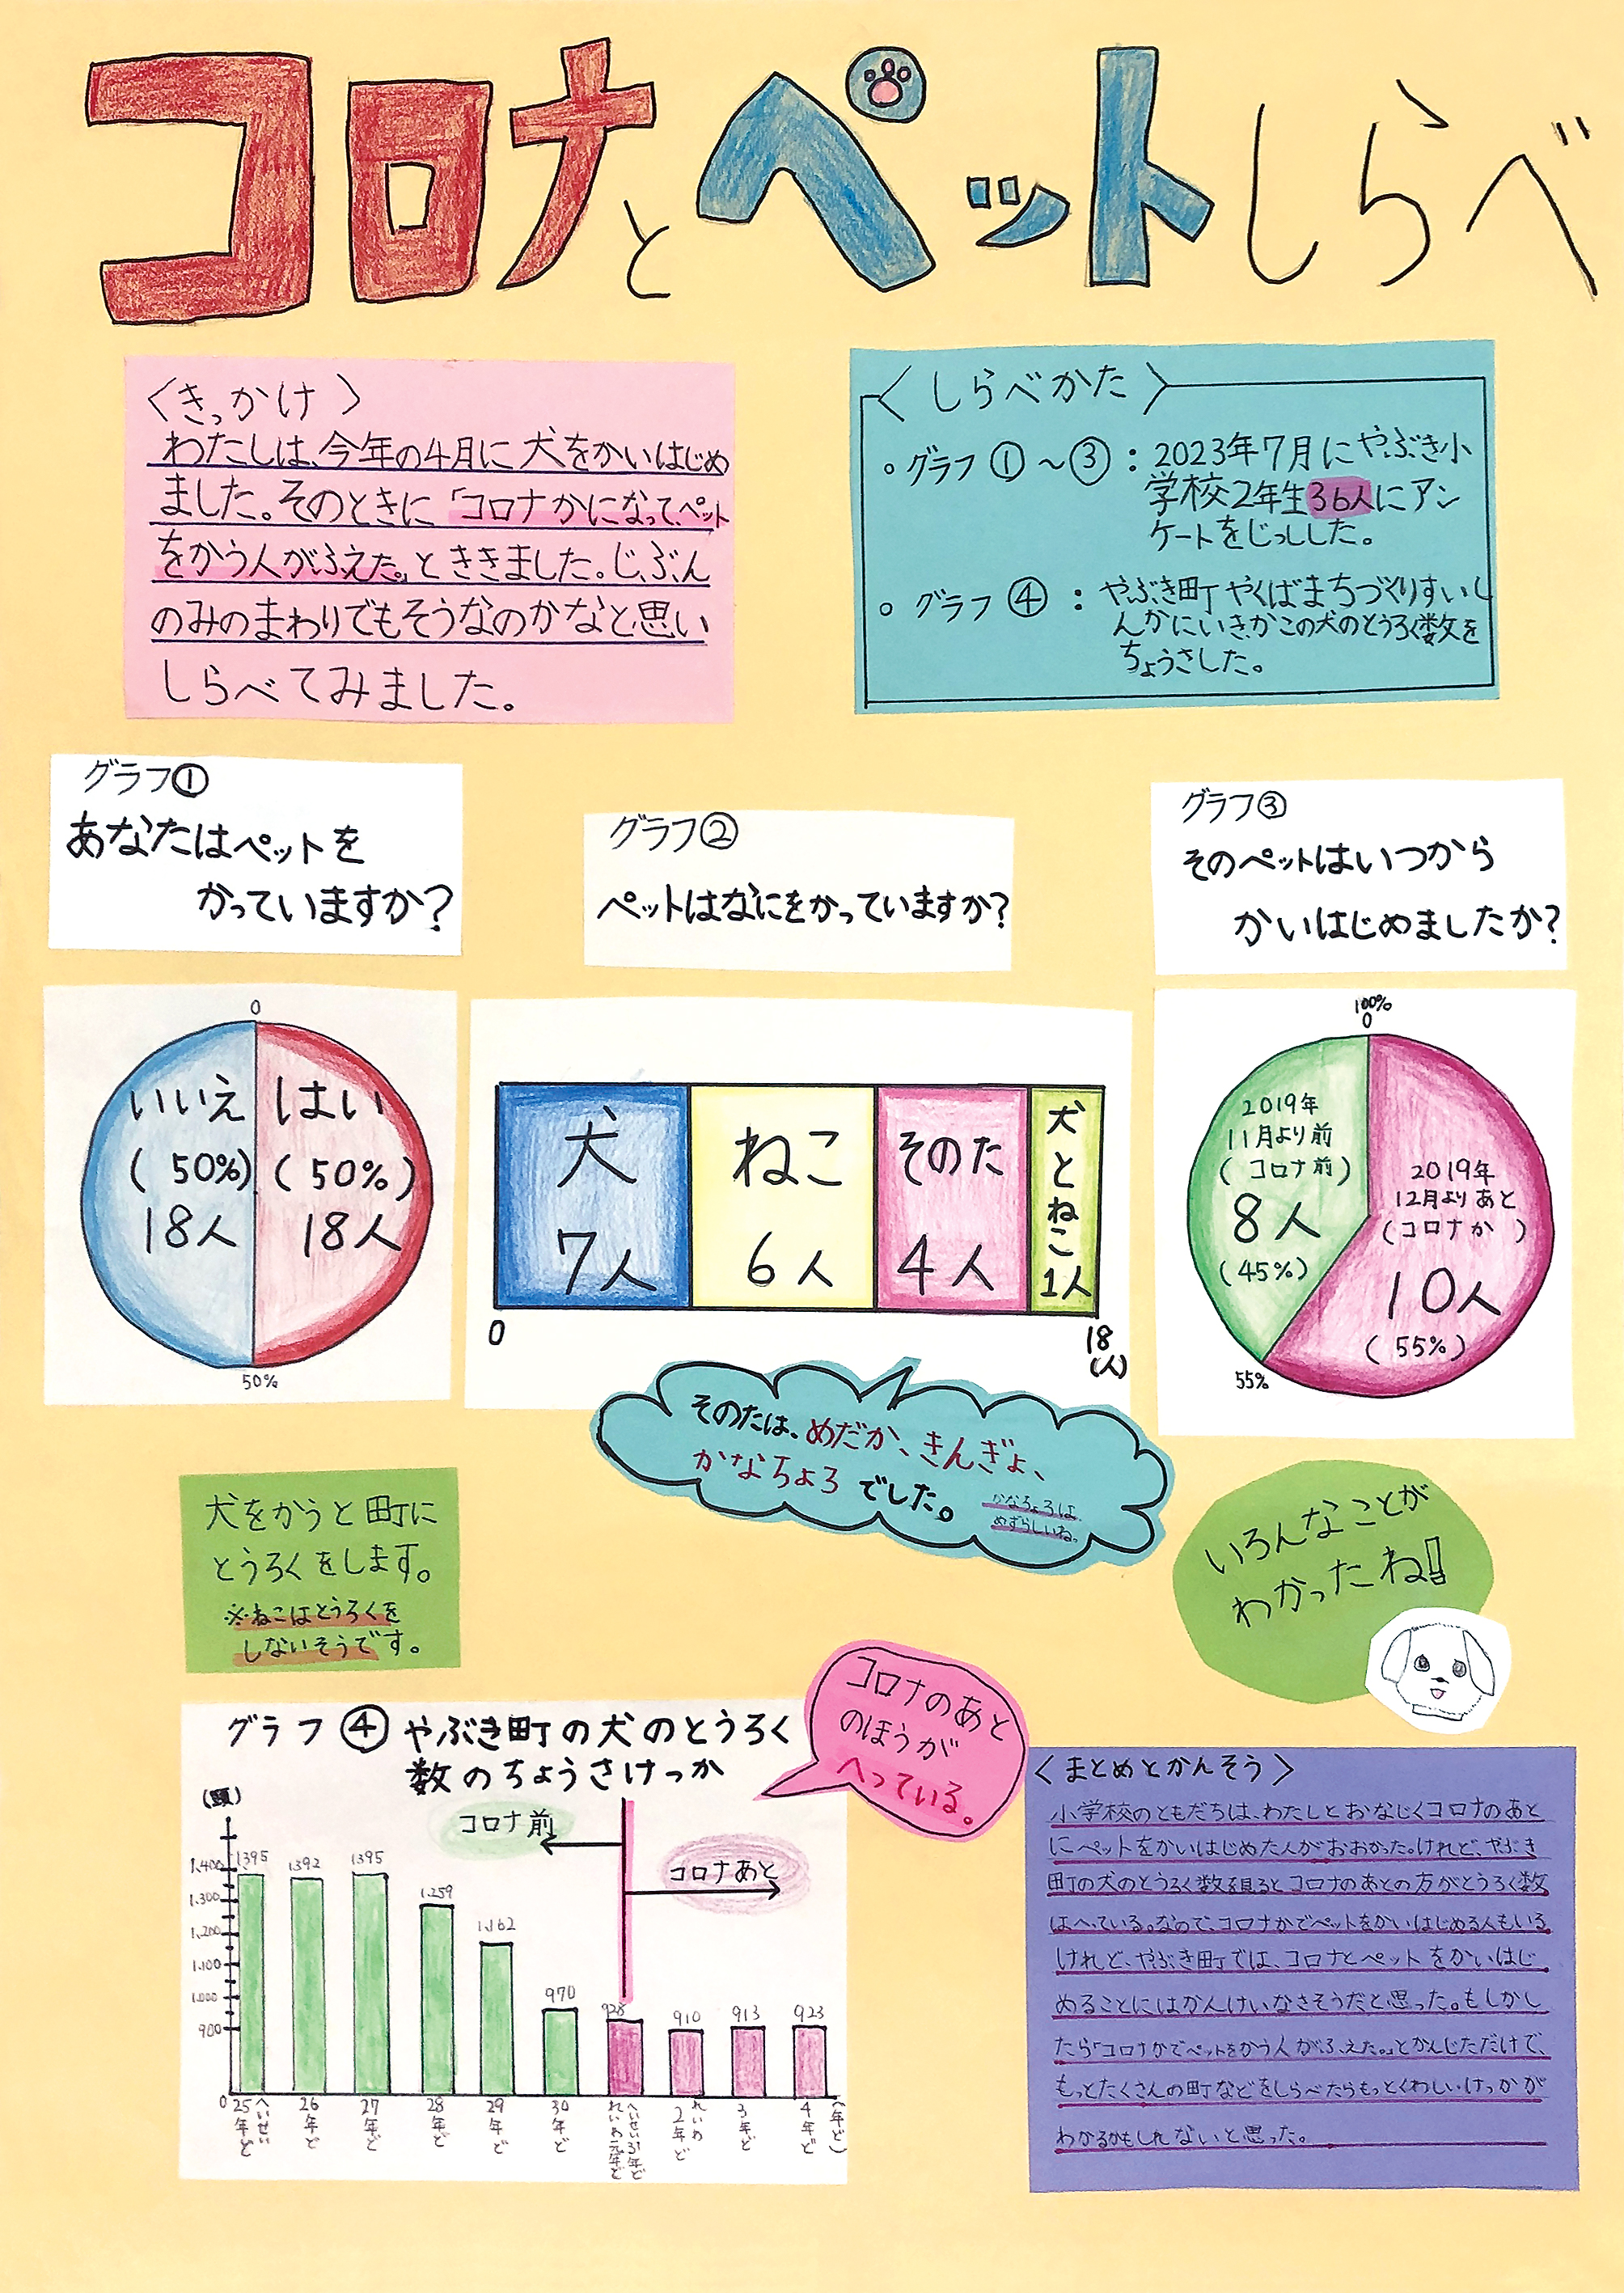 コロナとペットしらべ
〈きっかけ〉
わたしは、今年の4月に犬をかいはじめ
ました。そのときに「コロナかになって、ペット
をかう人がふえた。」とききました。じぶん
のみのまわりでもそうなのかなと思い
しらべてみました。
〈しらべかた〉
。グラフ①～③：2023年7月にやぶき小
学校2年生36人にアン
ケートをじっしした。
。グラフ④：やぶき町やくばまちづくりすいし
んかにいきかこの犬のとうろく数を
ちょうさした。
グラフ①
あなたはペットを
かっていますか？
グラフ②
ペットはなにをかっていますか？
グラフ③
そのペットはいつから
かいはじめましたか？
0
いいえ
(50%)
18人
はい
(50%)
18人
50%
犬
7人
ねこ
6人
そのた
4人
犬とねこ
1人
0
18
(人)
100%
0
2019年
11月より前
(コロナ前)
8人
(45%)
2019年
12月よりあと
(コロナか)
10人
(55%)
55%
そのたは、めだか、きんぎょ、
かなちょろでした。
かなちょろは
めずらしいね。
犬をかうと町に
とうろくをします。
※ねこはとうろくを
しないそうです。
いろんなことが
わかったね!!
グラフ④ やぶき町の犬のとうろく
数のちょうさけっか
コロナのあと
のほうが
へっている。
(頭)
コロナ前
コロナあと
1.400
1.300
1.200
1.100
1.000
900
0
1395
1392
1395
1.259
1.162
970
928
910
913
923
へいせい
25年ど
26年ど
27年ど
28年ど
29年ど
30年ど
へいせい31年ど
れいわ元年ど
れいわ
2年ど
3年ど
4年ど
(年ど)
〈まとめとかんそう〉
小学校のともだちは、わたしとおなじくコロナのあと
にペットをかいはじめた人がおおかった。けれど、やぶき
町の犬のとうろく数を見るとコロナのあとの方がとうろく数
はへっている。なので、コロナかでペットをかいはじめる人もいる
けれど、やぶき町では、コロナとペットをかいはじ
めることにはかんけいなさそうだと思った。もしかし
たら「コロナかでペットをかう人がふえた。」とかんじただけで、
もっとたくさんの町などをしらべたらもっとくわしいけっかが
わかるかもしれないと思った。